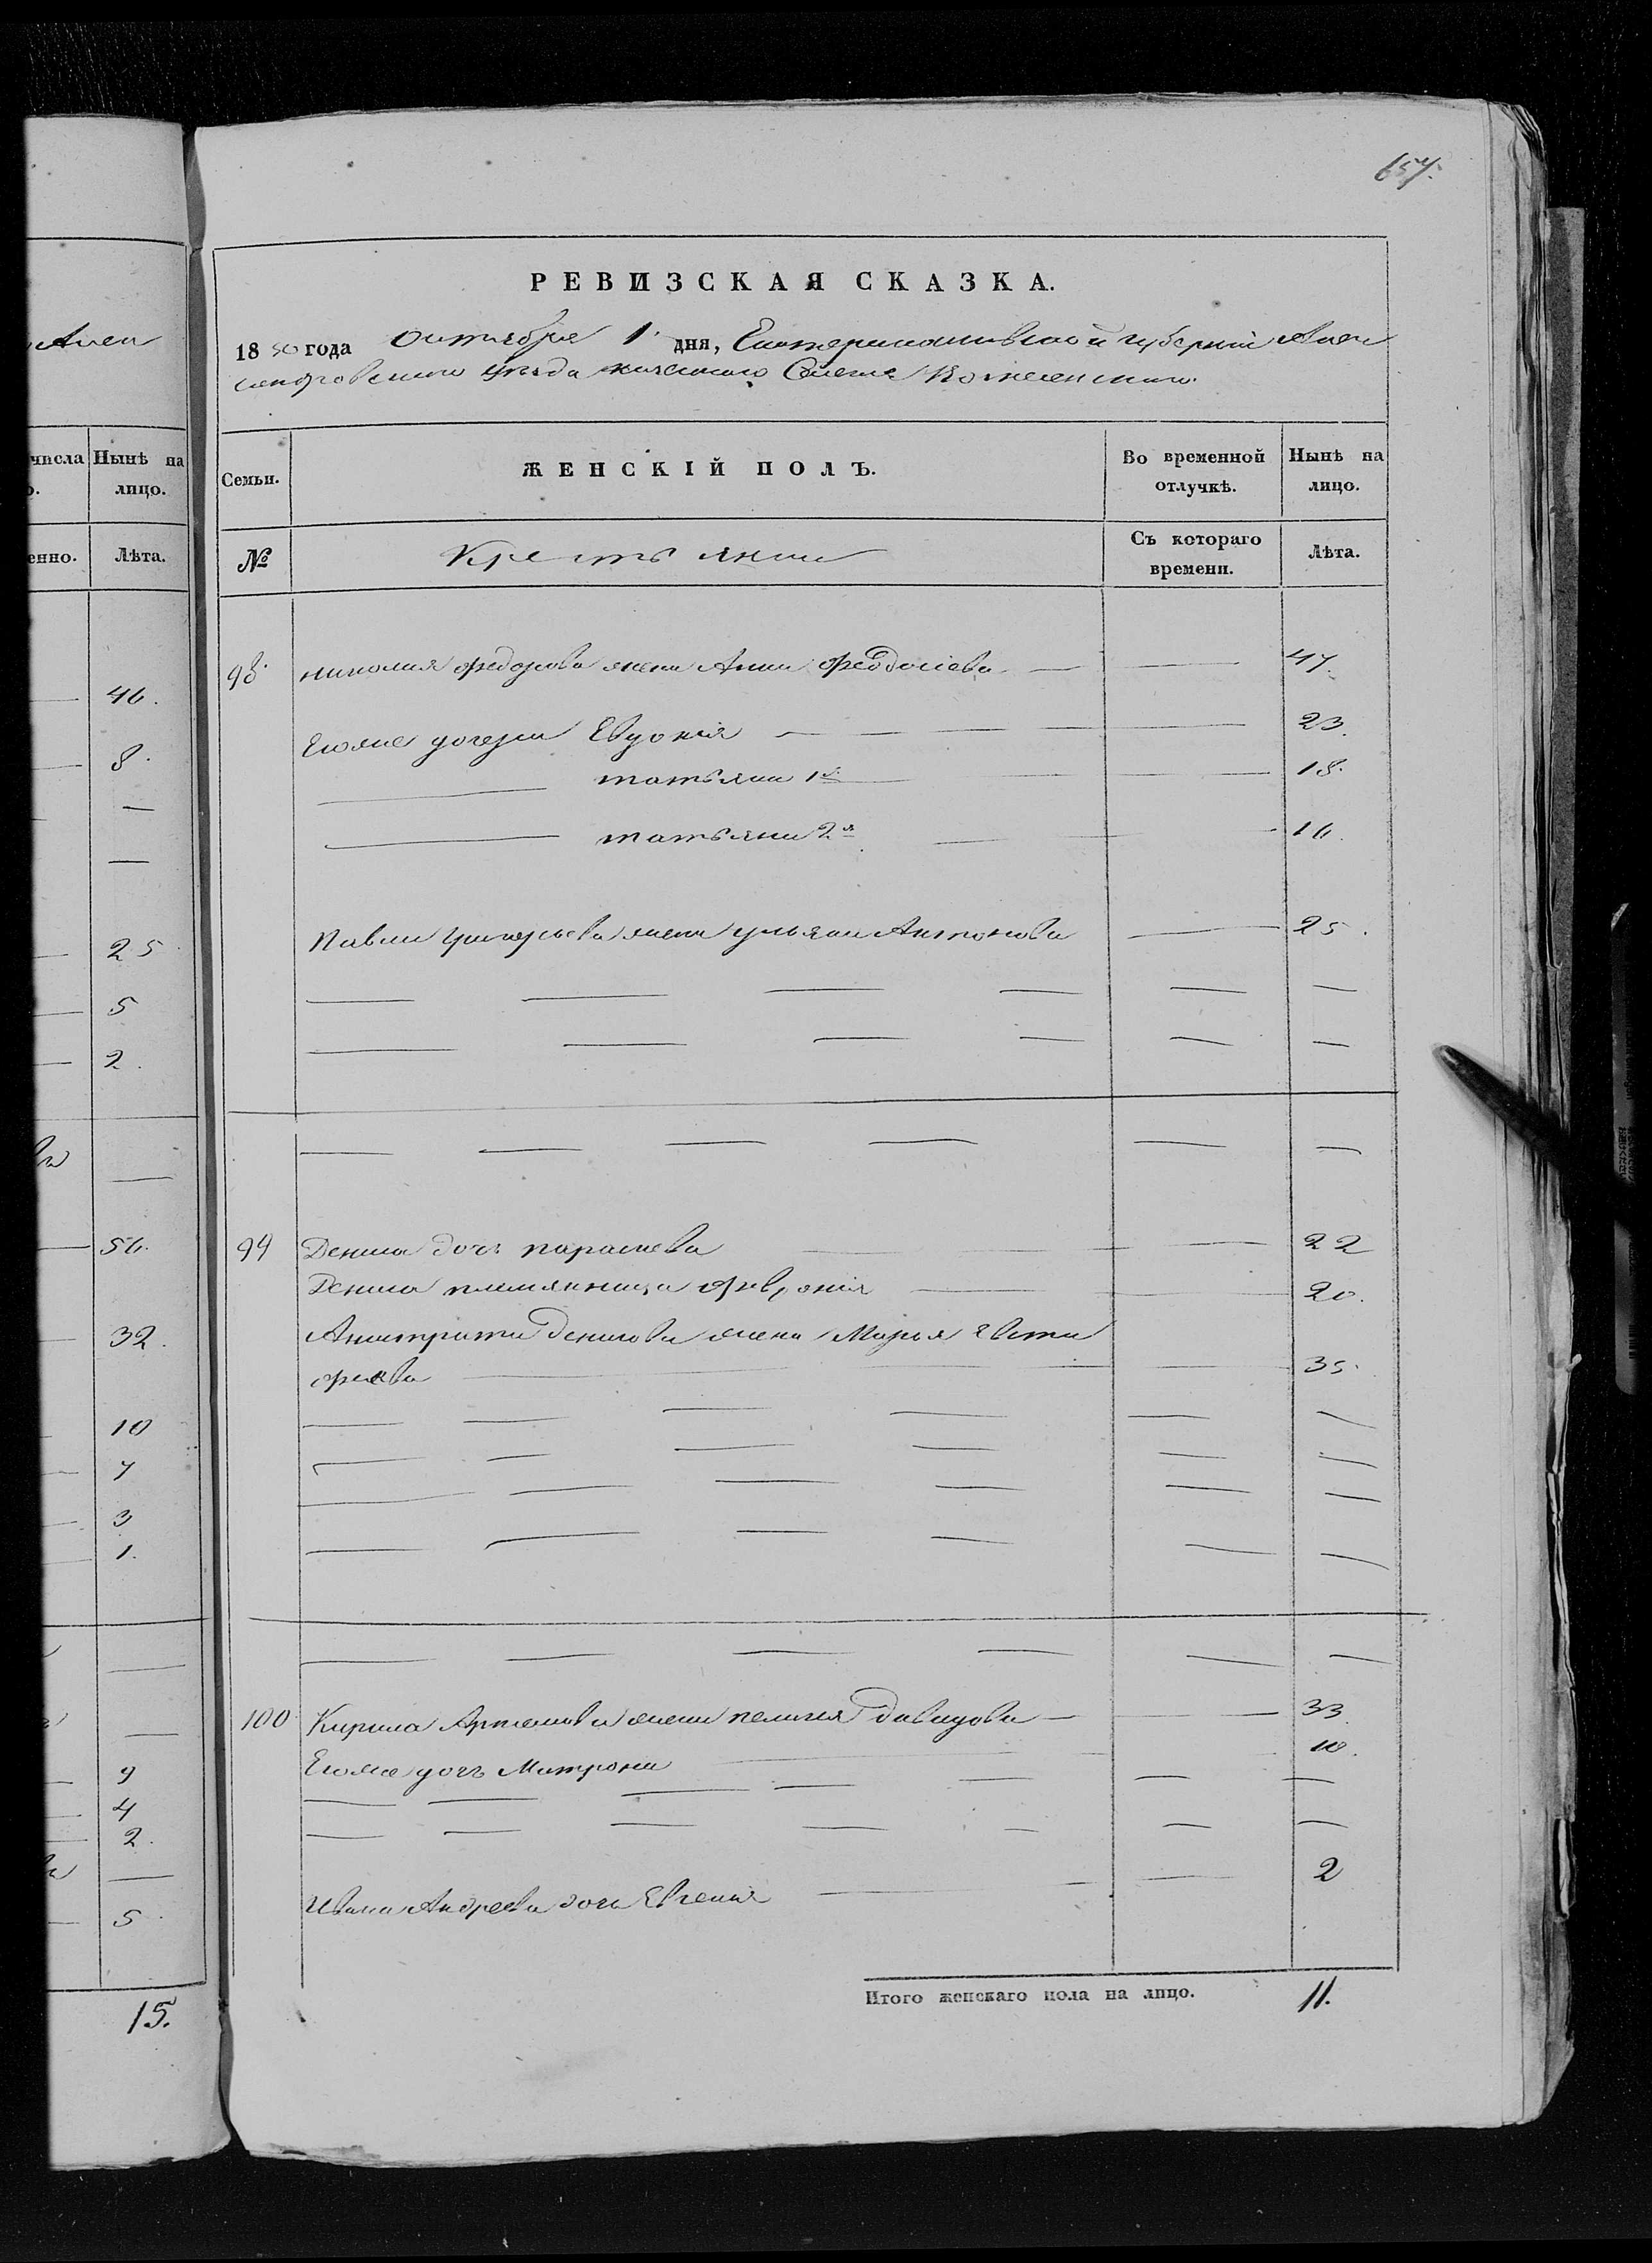 657.
Алек
РЕВИЗСКАЯ СКАЗКА.
1850 года Октября 1 дня, Екатеринославской губерніи Алек
сандровского уезда казенного Селения Вознесенского.
числа
Нынѣ на лицо.
Семьи.
ЖЕНСКІЙ ПОЛЪ.
Во временной отлучкѣ.
Нынѣ на лицо.
енно.
Лѣта.
№
Крестьянки
Съ котораго времени.
Лѣта.
98. Николая Федорова жена Анна Феодосіева 47.
Его же дочери Евдокія 23.
татьяна 1я 18.
татьяна 2я 16.
Павла Григорьева жена ульяна Антонова 25.
99 Дениса дочь параскева 22
Дениса племянница Феврония 20.
Анистрата Денисова жена Марья Евста
фьева 35.
100 Кирила Артемова жена пелагея Давидова 33.
Его же дочь Матрона 10.
Ивана Андреева дочь Евгения 2
Итого женскаго пола на лицо. 11.
46.
8.
25
5
2.
56.
32.
10
7
3
1.
9
4
2.
5
15.